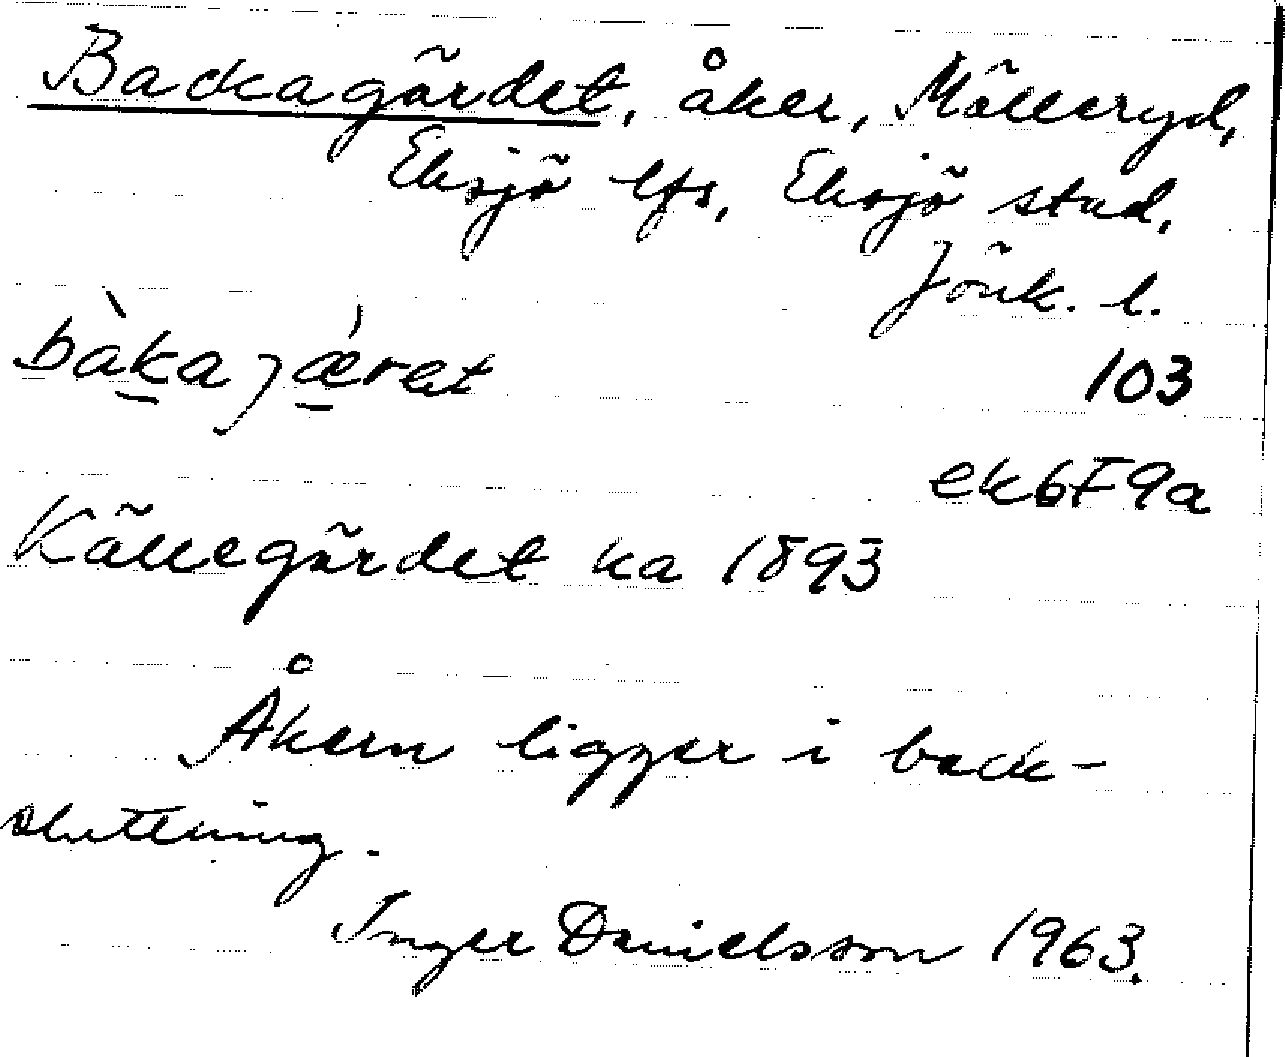 Backagärdet, åker, Mälleryd,
Eksjö lfs, Eksjö stad,
Jönk. l.
bàka jæ̀rat
103
ek6F9a
Källegärdet ka 1893
Åkern ligger i back-
sluttning.
Inger Danielsson 1963.